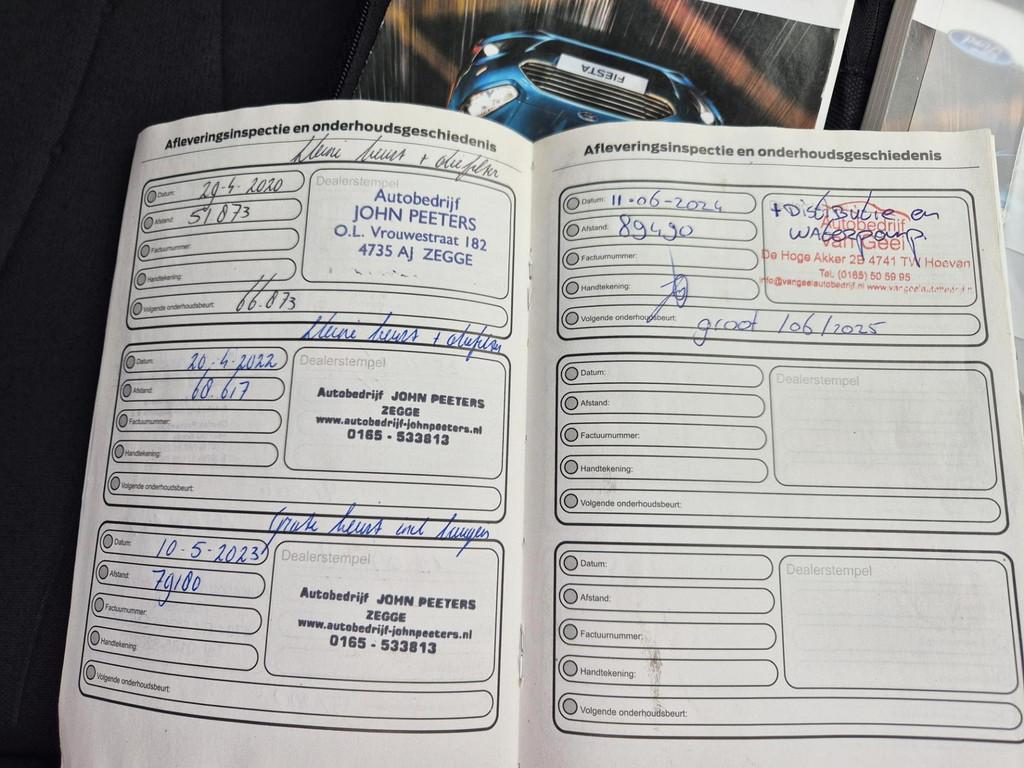 FIESTA
Ford
Afleveringsinspectie en onderhoudsgeschiedenis
kleine beurt + oliefilter
Datum: 29-4-2020
Afstand: 51873
Factuurnummer:
Handtekening:
Volgende onderhoudsbeurt: 66.873
Dealerstempel
Autobedrijf
JOHN PEETERS
O.L. Vrouwestraat 182
4735 AJ ZEGGE
kleine beurt + oliefilter
Datum: 20-4-2022
Afstand: 68.617
Factuurnummer:
Handtekening:
Volgende onderhoudsbeurt:
Dealerstempel
Autobedrijf JOHN PEETERS
ZEGGE
www.autobedrijf-johnpeeters.nl
0165 - 533813
Grote beurt incl
Datum: 10-5-2023
Afstand: 79180
Factuurnummer:
Handtekening:
Volgende onderhoudsbeurt:
Dealerstempel
Autobedrijf JOHN PEETERS
ZEGGE
www.autobedrijf-johnpeeters.nl
0165 - 533813
Afleveringsinspectie en onderhoudsgeschiedenis
Datum: 11-06-2024
Afstand: 89490
Factuurnummer:
Handtekening:
Volgende onderhoudsbeurt: groot /06/2025
+ Distributie en
waterpomp
Autobedrijf
van Geel
De Hoge Akker 2B 4741 TW Hoeven
Tel. (0165) 50 59 95
info@vangeelautobedrijf.nl www.vangeelautobedrijf.nl
Datum:
Afstand:
Factuurnummer:
Handtekening:
Volgende onderhoudsbeurt:
Dealerstempel
Datum:
Afstand:
Factuurnummer:
Handtekening:
Volgende onderhoudsbeurt:
Dealerstempel